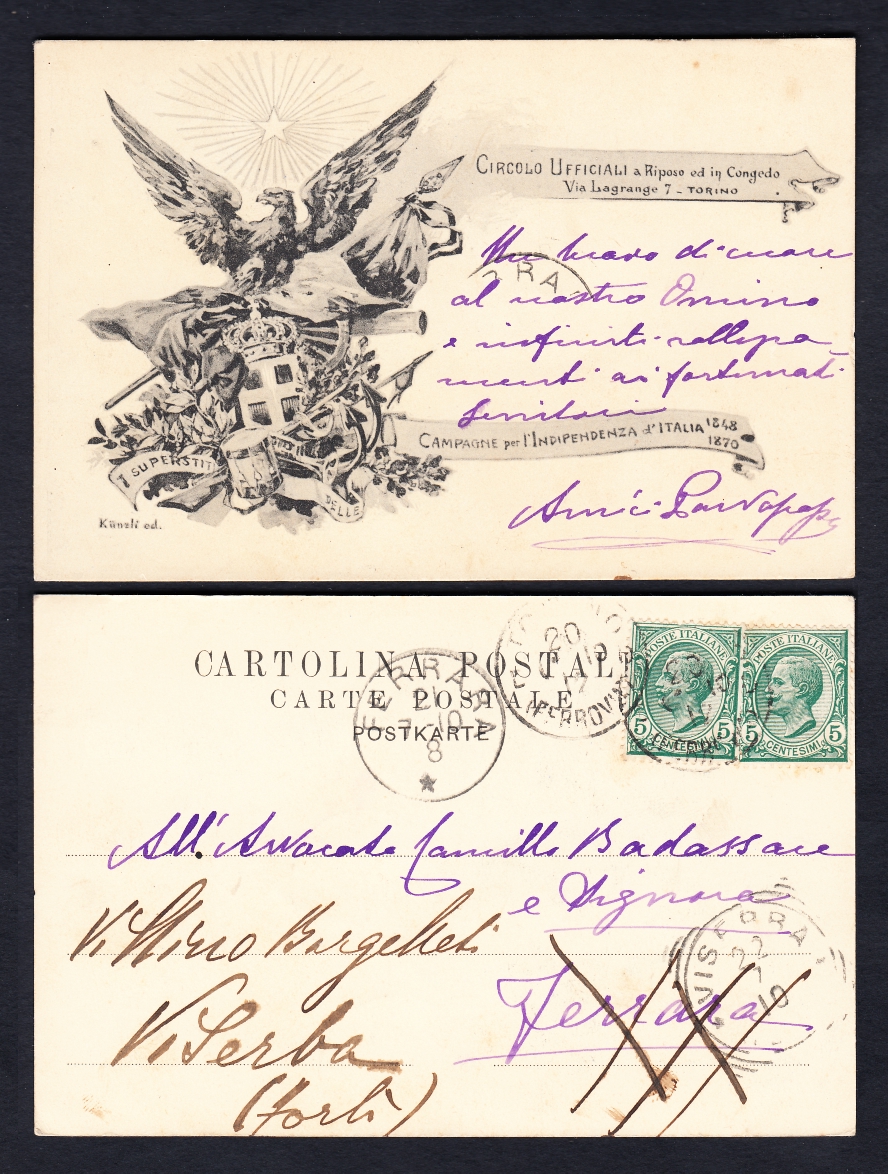 CIRCOLO UFFICIALI a Riposo ed in Congedo
Via Lagrange 7 - TORINO
Un bravo di cuore
al nostro Omino
e infiniti rallegra
menti ai fortunati
Genitori
CAMPAGNE per l'INDIPENDENZA d'ITALIA 1848
1870
I SUPERSTITI
DELLE
Künzli ed.
Amici
CARTOLINA POSTALE
CARTE POSTALE
POSTKARTE
FERRARA
20
7-10
8
20
(FERROVIA)
POSTE ITALIANE
5 CENTESIMI 5
POSTE ITALIANE
5 CENTESIMI 5
All'Avvocato Camillo Badassare
e Signora
Ferrara
Villino Borgelleti
Viserba
(Forlì)
VISERBA
22
7
10